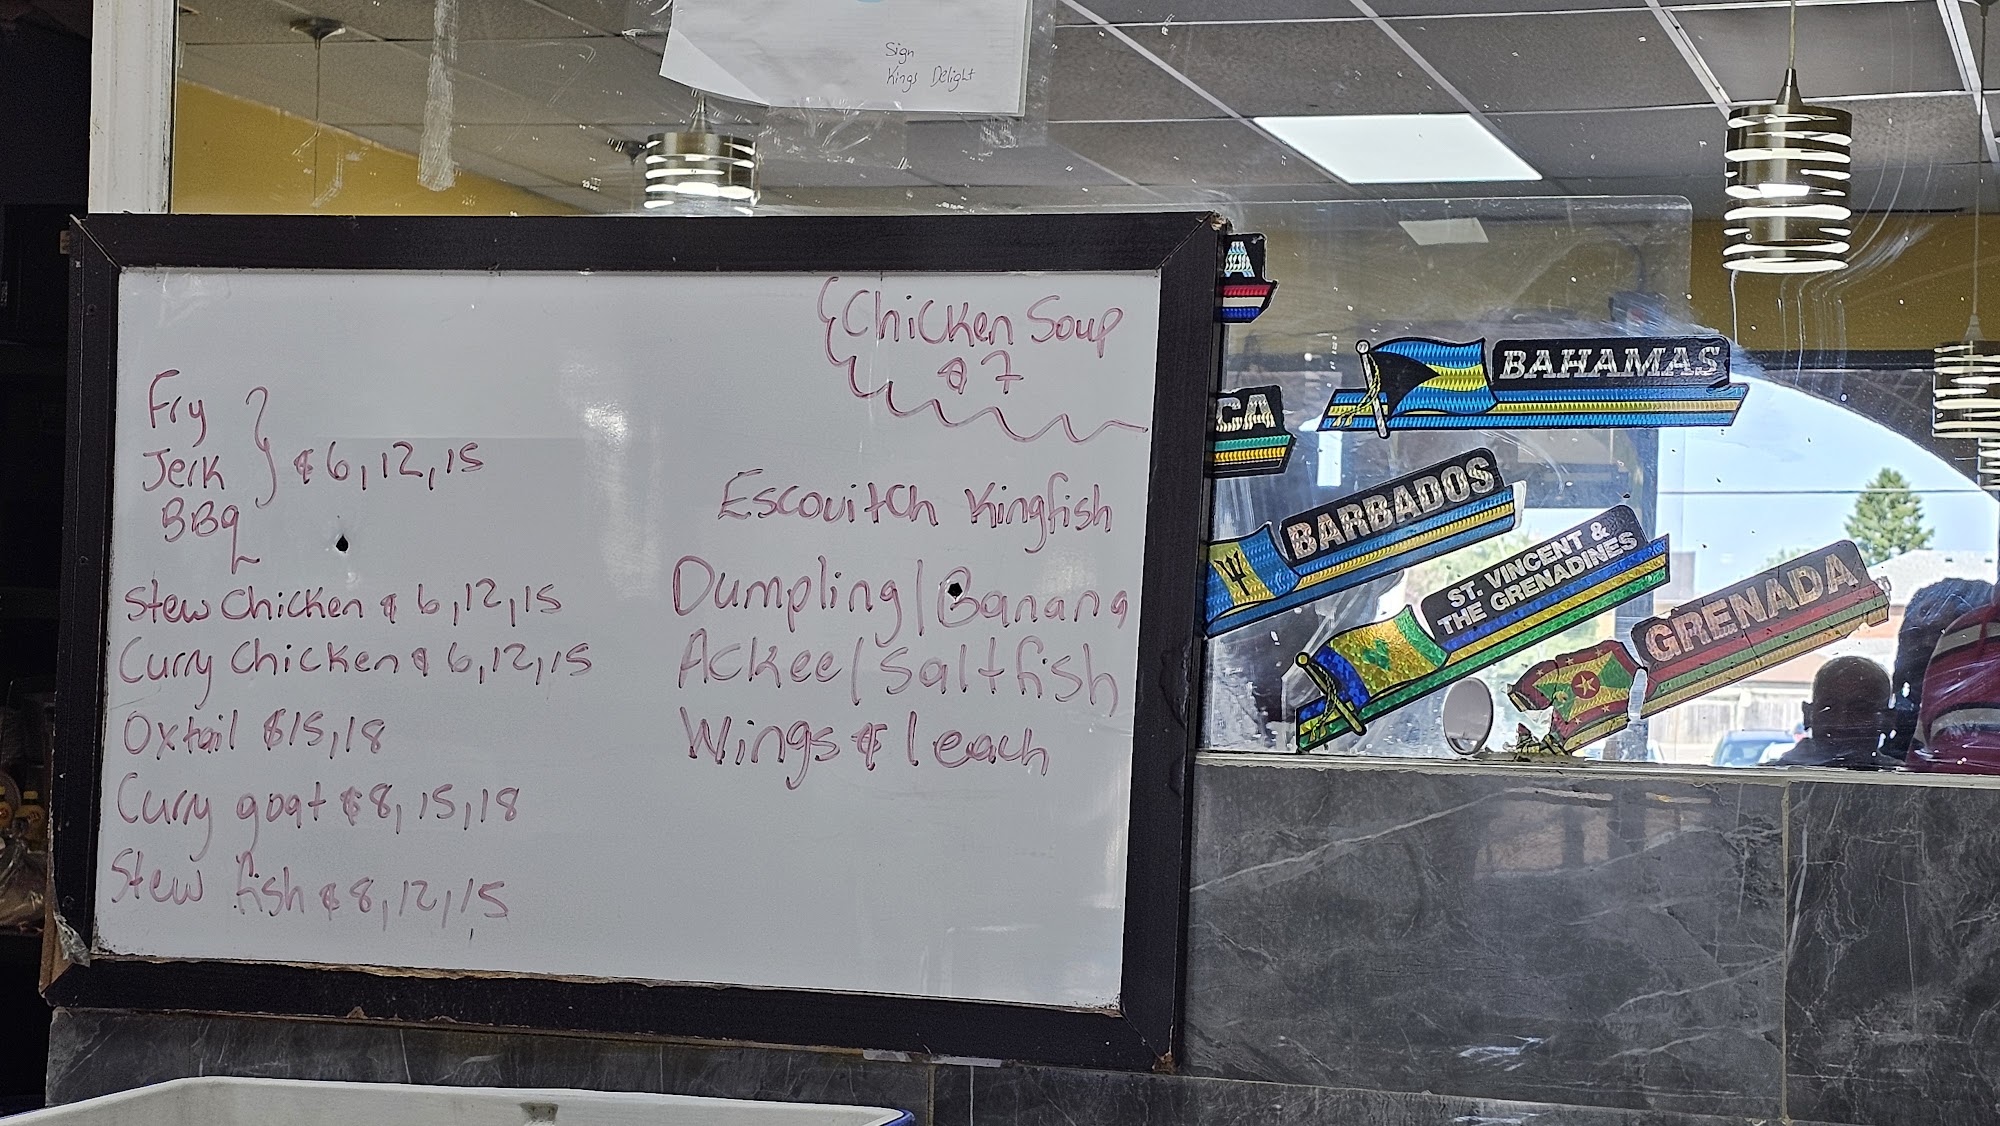 Sign
Kings Delight
Chicken Soup
$7
Fry
Jerk
BBq
$6,12,15
Stew Chicken $ 6,12,15
Curry Chicken $ 6,12,15
Oxtail $15,18
Curry goat $8,15,18
Stew fish $8,12,15
Escovitch Kingfish
Dumpling/Banana
Ackee/saltfish
Wings $1 each
A
CA
BAHAMAS
BARBADOS
ST. VINCENT &
THE GRENADINES
GRENADA